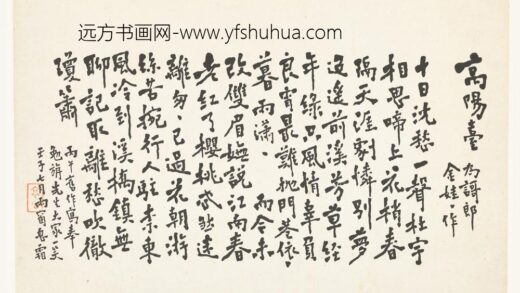 远方书画网-www.yfshuhua.com
高陽臺
十日沈愁一聲杜宇
相思啼上花梢春
隔天涯劇憐別夢
迢遙前溪芳草經
年綠只風情辜負
良宵最難抛門巷依、
暮雨瀟、而今未
改雙眉嫵説江南春
老紅了櫻桃忒煞迷
離匆、已過花朝游
絲苦挽行人駐奈東
風冷到溪橋鎮無
聊記取離愁吹徹
瓊簫
丙午舊作寫奉
先生大家一笑
壬子七月雨窗